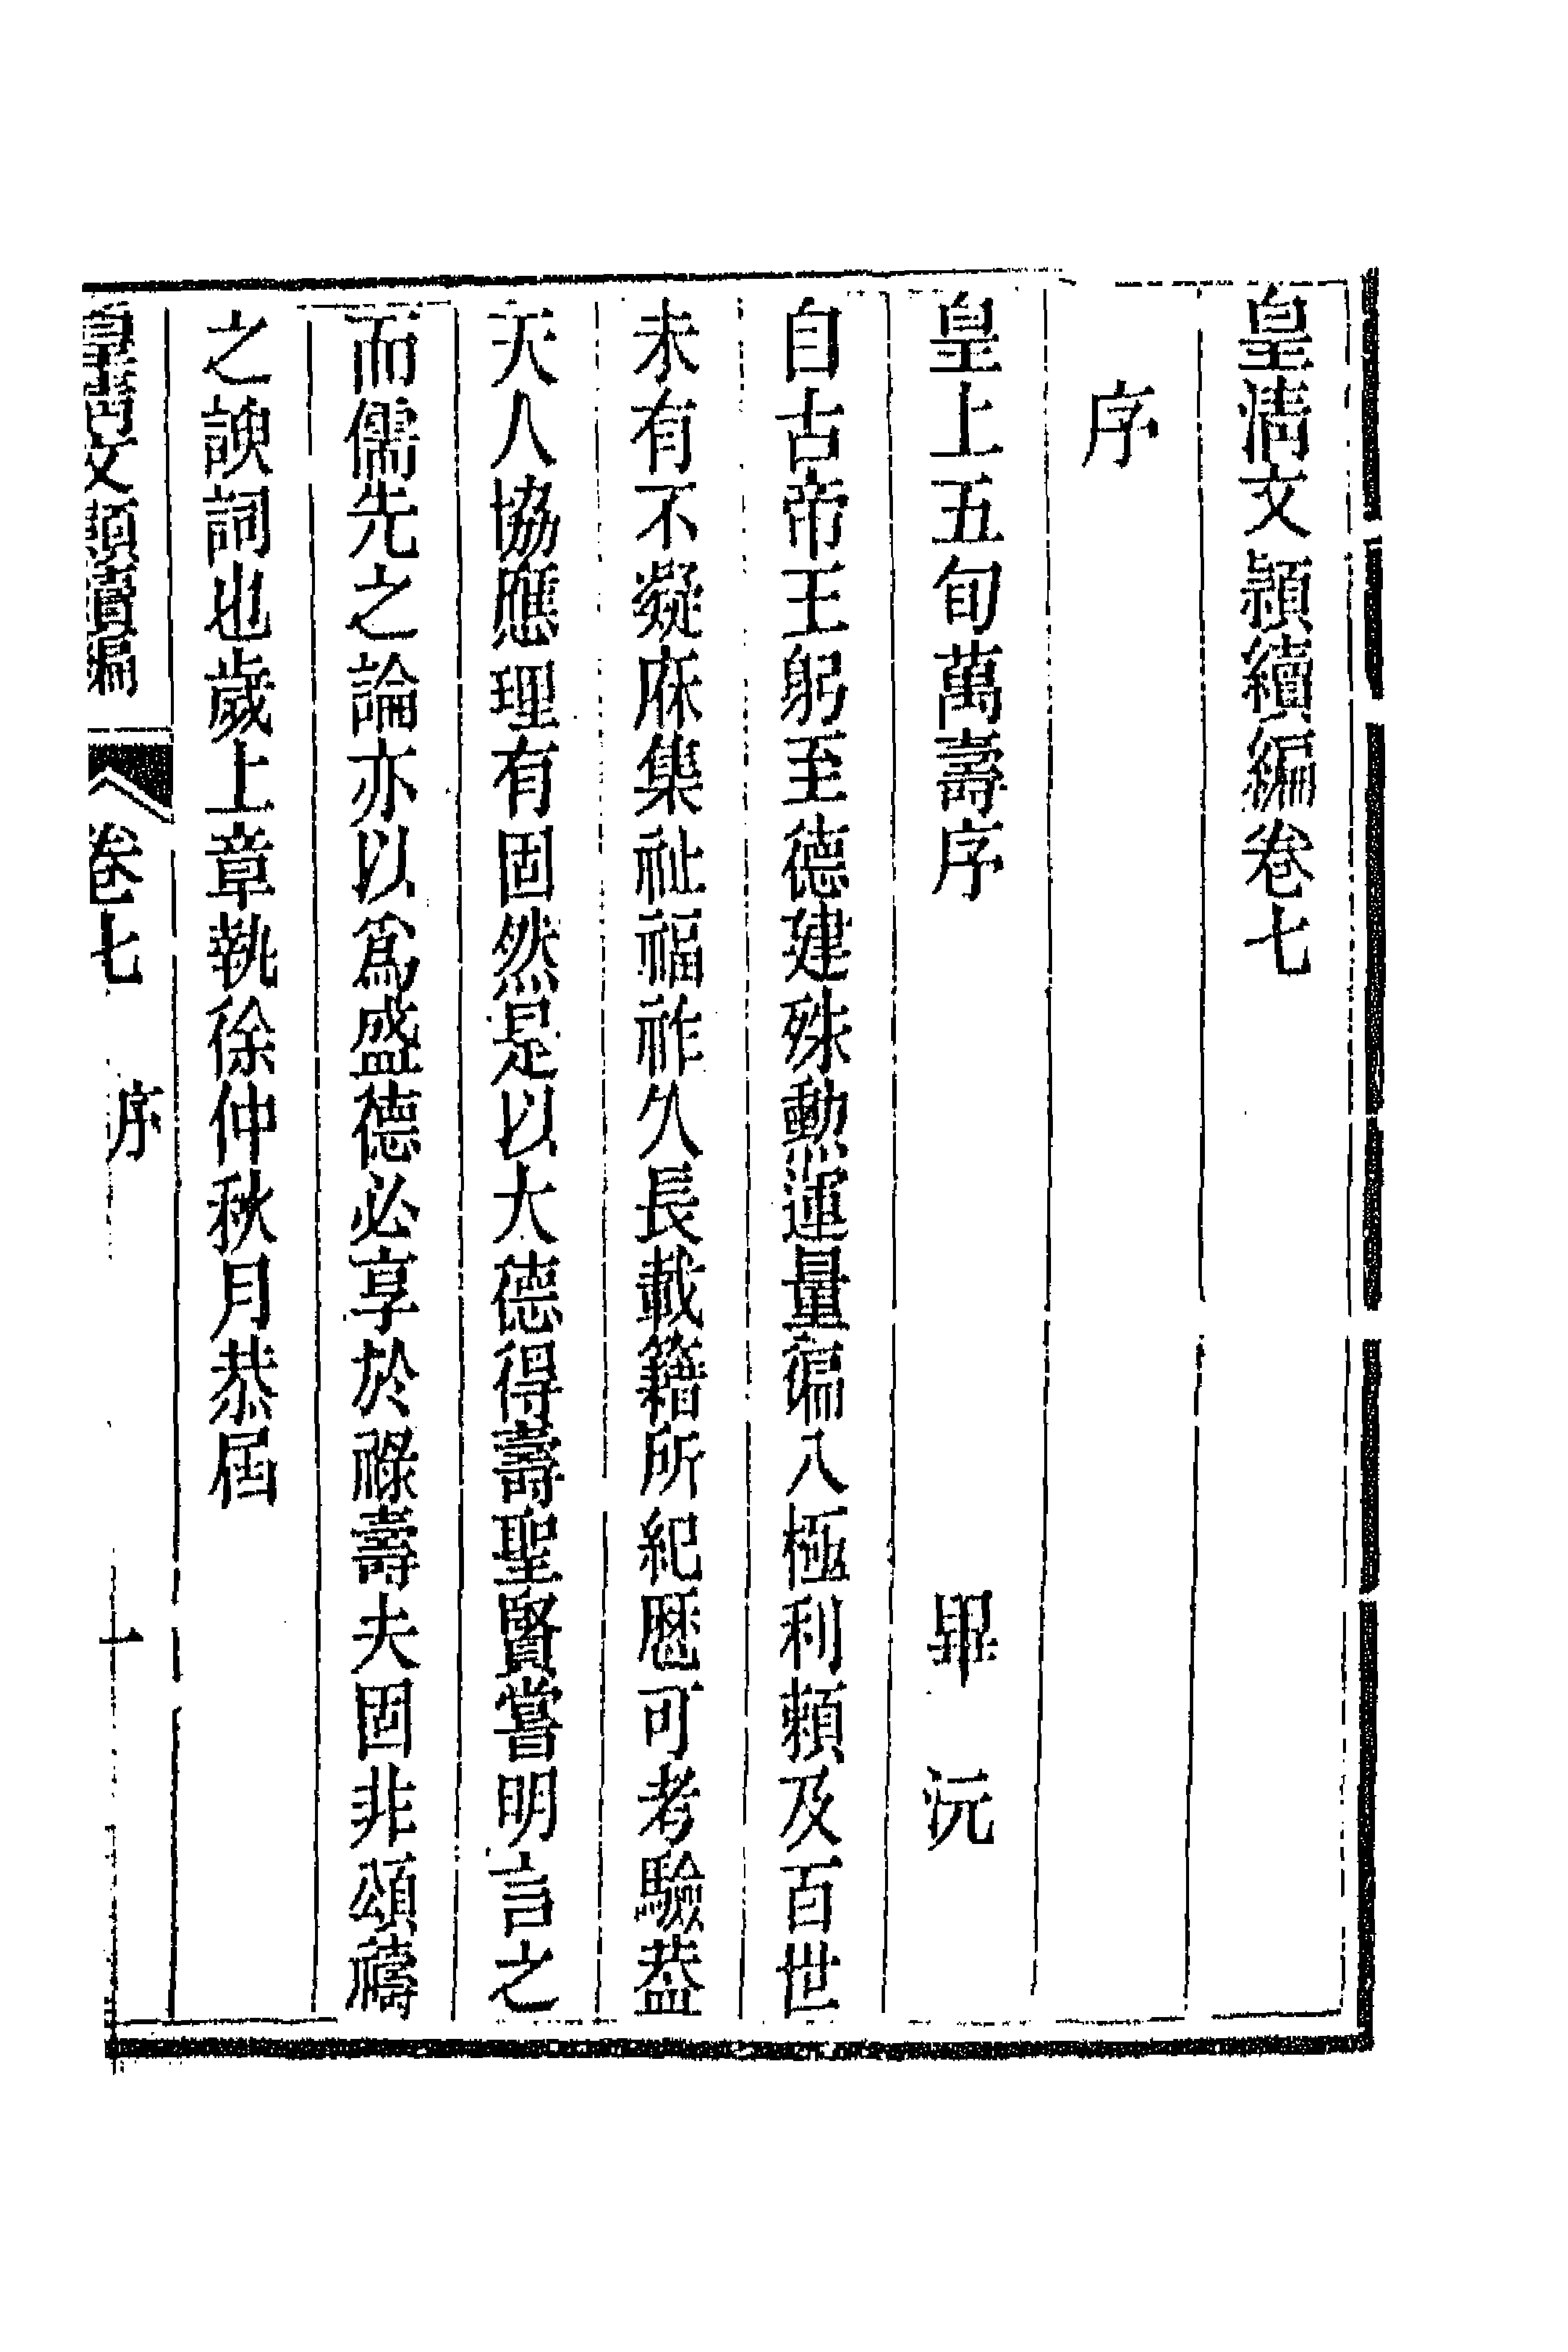 皇淸文頴續編卷七
序
皇上五旬萬壽序 畢沅
自古帝王躬至德建殊勲運量徧八極利頼及百世
未有不凝庥集祉福祚久長載籍所紀歷可考驗葢
天人協應理有固然是以大德得壽聖賢嘗明言之
而儒先之論亦以爲盛德必享於祿壽夫固非頌禱
之諛詞也歲上章執徐仲秋月恭屆
皇淸文頴續編 卷七 序 一